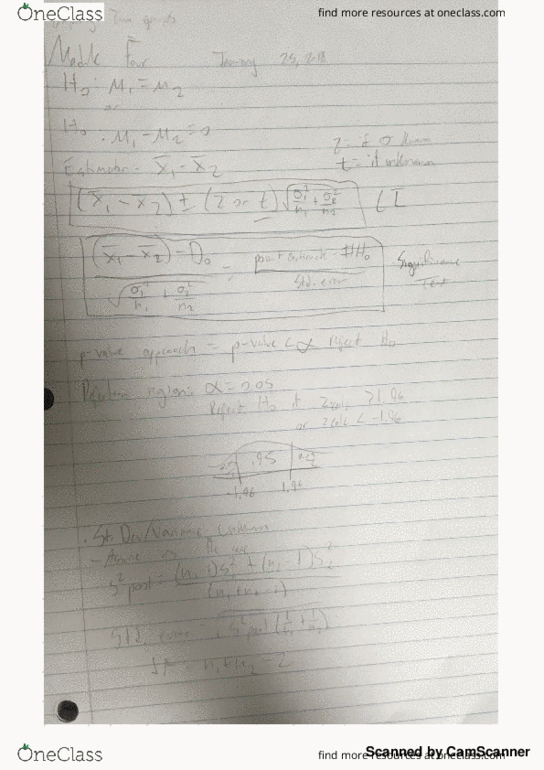 OneClass
find more resources at oneclass.com
Module Four January 25, 2018
H₀: μ₁ = μ₂
or
H₀: μ₁ - μ₂ = 0
z - if σ known
t - if unknown
Estimator - x̄₁ - x̄₂
(x̄₁ - x̄₂) ± (z or t) √(σ₁²/n₁ + σ₂²/n₂) CI
((x̄₁ - x̄₂) - D₀) / √(σ₁²/n₁ + σ₂²/n₂) = (point estimate - #H₀) / Std. error Significance Test
p-value approach = p-value < α reject H₀
Rejection regions α = 0.05
Reject H₀ if zcalc > 1.96
or zcalc < -1.96
.95
-1.96 1.96
St Dev/Variance
- Assume the
s²pool = (n₁ - 1)s₁² + (n₂ - 1)s₂²
Std. error = √(s²pool (1/n₁ + 1/n₂))
df = n₁ + n₂ - 2
OneClass
find more resources at oneclass.com
Scanned by CamScanner